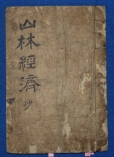 山林經濟 抄